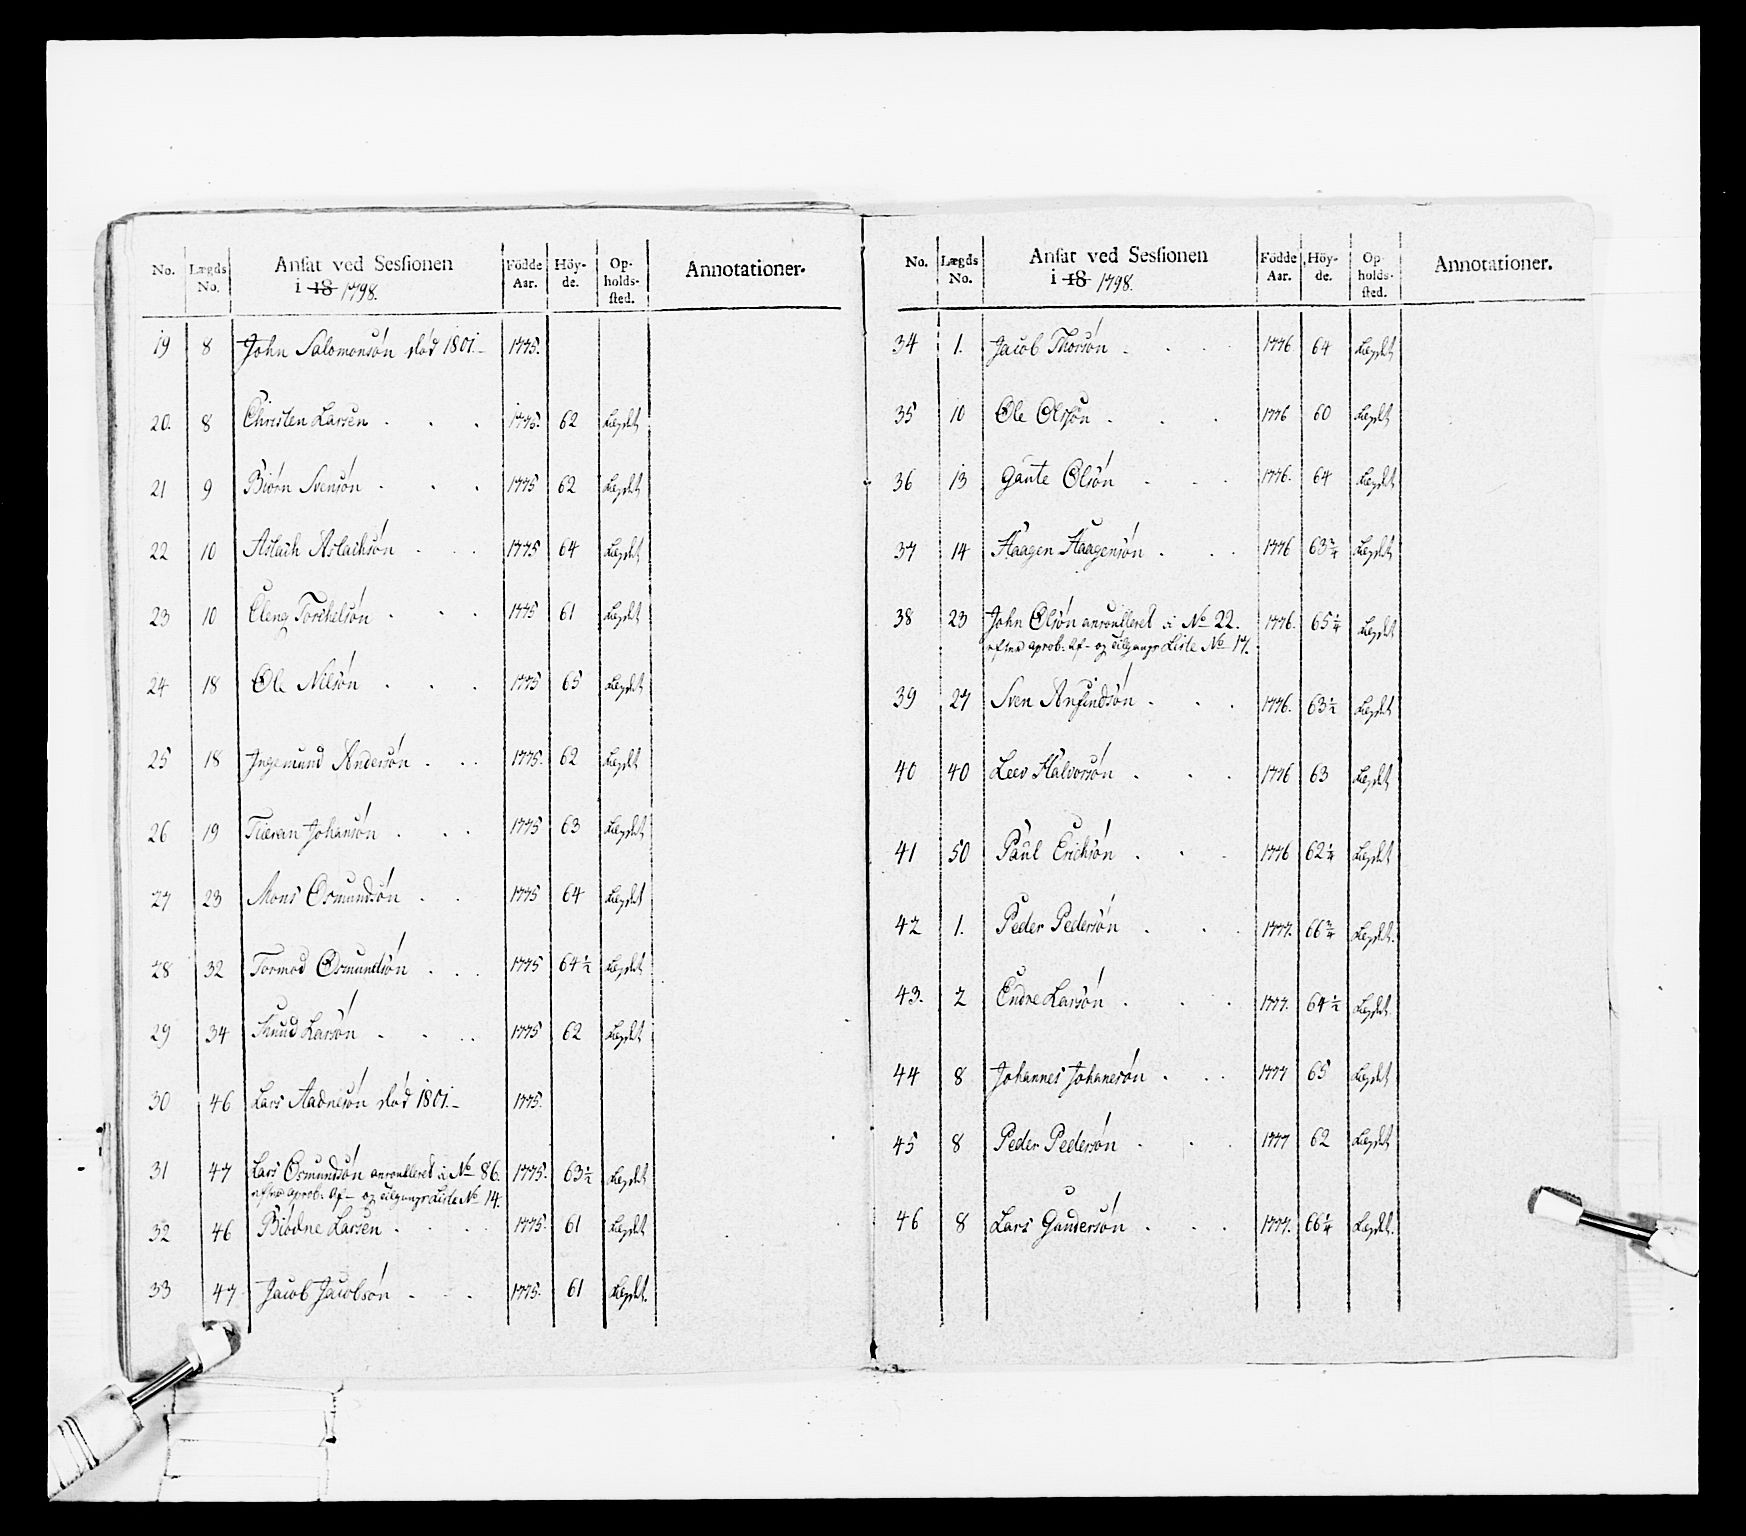 No. Lægds No. Ansat ved Sessionen i 18 1798. Födde Aar. Höy- de. Op- holds- sted. Annotationer.
19 8 John Salomonsón død 1801.- 1775.
20. 8 Christen Larsen . . . 1775. 62 Legdet
21 9 Biórn Svensón . . . 1775 62 Legdet
22 10 Aslach Aslachsón . . . 1775 64 Legdet
23 10 Eleng Torchelsón . . . 1775 61 Legdet
24 18 Ole Nilsón . . . 1775 65 Legdet
25 18 Ingemund Andersón . . . 1775. 62 Legdet
26 19 Tieran Johansón . . . 1775 63 Legdet
27 23 Mons Osmundsón . . 1775 64 Legdet
28 32 Tormod Osmundsón . . . 1775 64½ Legdet
29 34 Knud Larsón . . . . 1775 62 Legdet
30 46 Lars Aadnesón død 1801.- 1775.
31 47 Lars Osmundsón anroulleret i No 86. 1775. 63½ Legdet
efter aprob: Af- og tilgangs Liste No 14.
32 46 Biódne Larsen . . . . 1775. 61 Legdet
33 47 Jacob Jacobsón . . . 1775. 61 Legdet.
No. Lægds No. Ansat ved Sessionen i 18 1798. Födde Aar. Höy- de. Op- holds- sted. Annotationer.
34 1. Jacob Thorsón . . . . 1776 64 Legdet
35 10 Ole Olsón . . . 1776 60 Legdet
36 13 Gaute Olsón . . . 1776. 64 Legdet
37 14 Haagen Haagensón . . . 1776 63¾ Legdet
38 23 John Olsón anroulleret i No 22. 1776. 65¼ Legdet
efter aprob: Af- og tilgangs Liste No 17.
39 27 Sven Anfindsón . . . 1776. 63½ Legdet
40 40 Leev Halvorsón . . . 1776 63 Legdet
41 50 Paul Erichsón . . . 1776 62¼ Legdet
42 1. Peder Pedersón . . . 1777. 66¾ Legdet.
43. 2 Endre Larsón . . . 1777. 64½ Legdet
44 8 Johannes Johanesón . . . 1777 65 Legdet
45 8 Peder Pedersón . . . 1777 62 Legdet
46 8 Lars Gundersón . . . 1777. 66¼ Legdet.